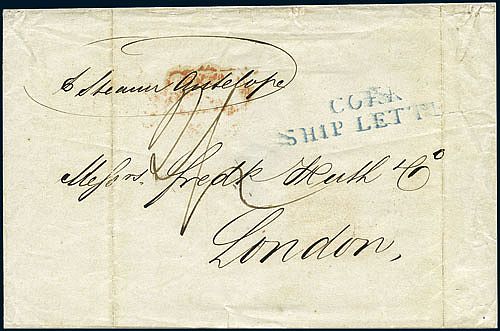 p Steamr Antelope
CORK
SHIP LETTE
Messrs. Fredk Huth & Co
London,